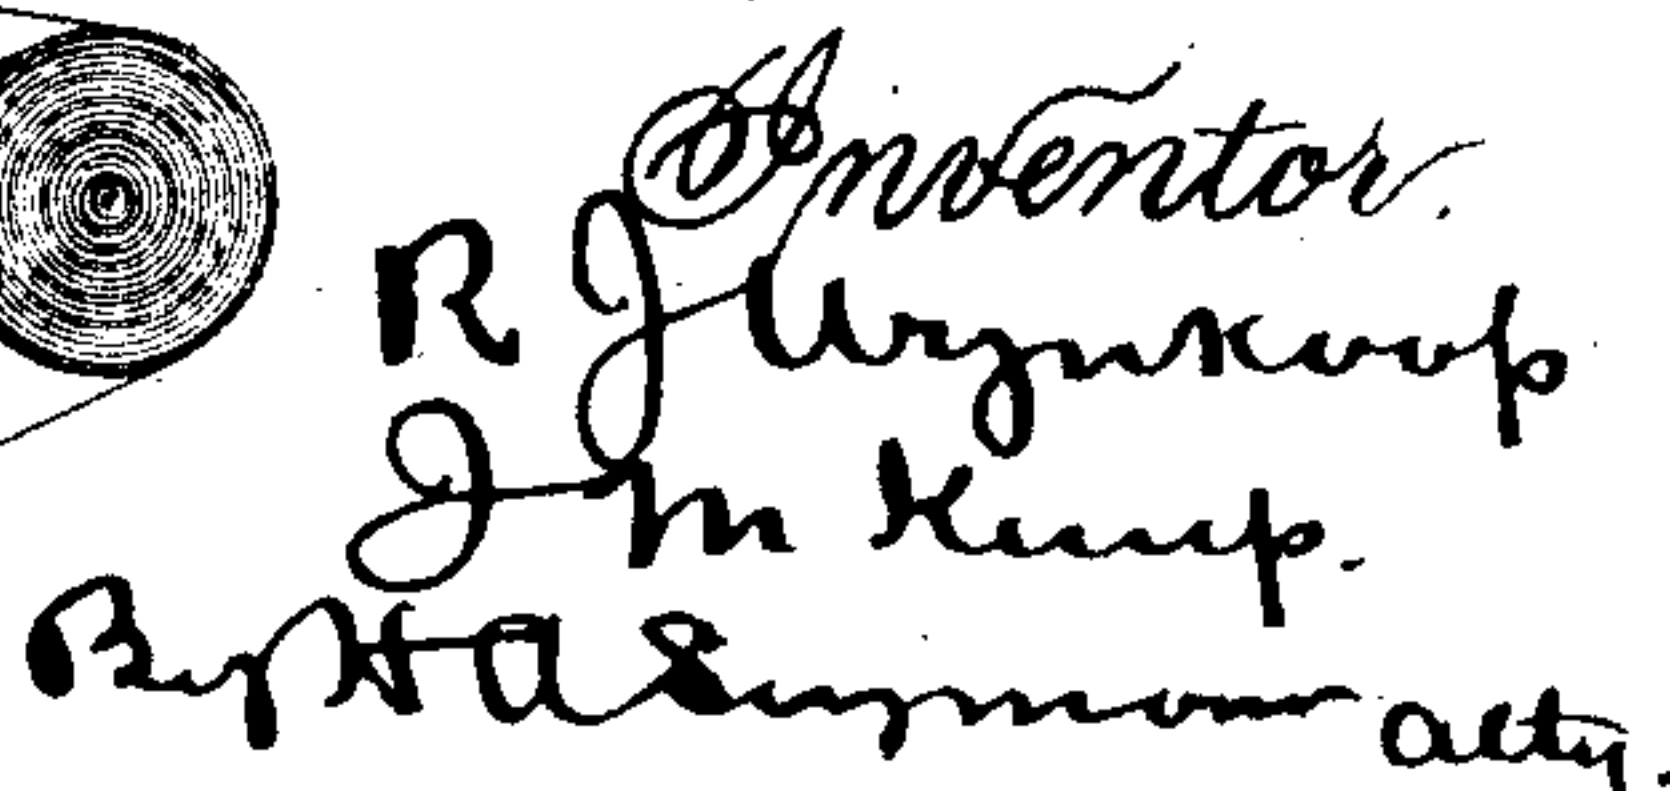 Inventor.
R J Wynkoop
J M Kemp.
By H A Seymour Atty.